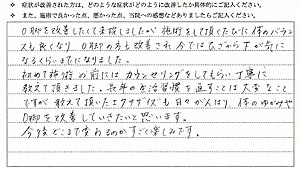 ※ 症状が改善された方は、どのような症状がどのように改善したか具体的にご記入ください。
※ また、施術で良かった点、悪かった点、当院への感想などありましたらご記入ください。
O脚を改善したくて来院しましたが 施術をして頂くたびに 体のバランス
も良くなり O脚の方も改善され 今ではひざから下が気に
なるくらいまでになりました。
初めて施術の前にはカウンセリングをしてもらい 丁寧に
教えて頂きました。長年の生活習慣を直すことは大変なこと
ですが 教えて頂いたエクササイズも日々がんばり、体のゆがみや
O脚を改善していきたいと思います。
今後どこまで変わるのかすごく楽しみです。